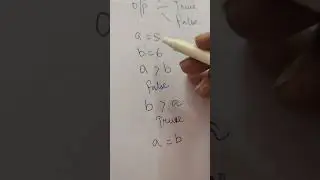 O/P True
False
a = 5
b = 6
a > b
False
b > a
True
a = b